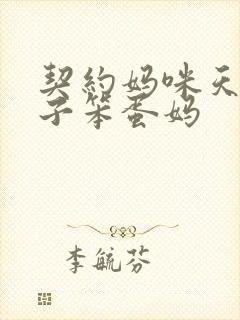 契約妈咪天
子笨蛋妈
李毓芬